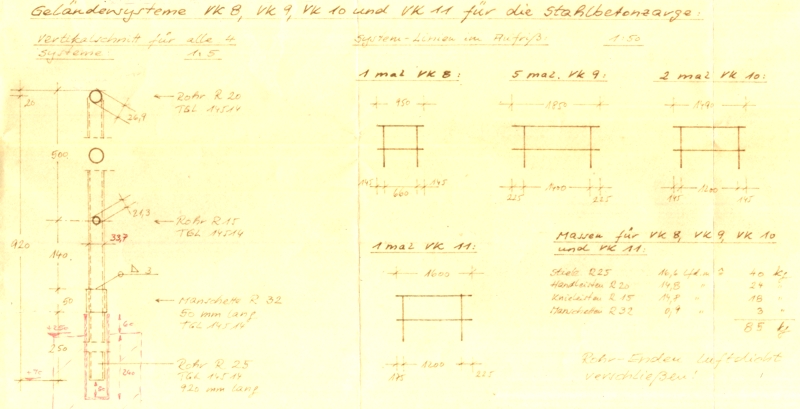 Geländersysteme VK 8, VK 9, VK 10 und VK 11 für die Stahlbetonzarge:
Vertikalschnitt für alle 4
Systeme 1:5
System-Linien im Aufriß: 1:50
20
26,9
Rohr R 20
TGL 14514
500
21,3
Rohr R 15
TGL 14514
33,7
920
140
3
50
Manschette R 32
50 mm lang
TGL 14514
60
250
240
Rohr R 25
TGL 14514
920 mm lang
1 mal VK 8:
950
145 660 145
5 mal VK 9:
1850
225 1400 225
2 mal VK 10:
1490
145 1200 145
1 mal VK 11:
1600
1200 225
Massen für VK 8, VK 9, VK 10
und VK 11:
Stiele R 25 40 kg
Handleisten R 20 14,8 " 24 "
Knieleisten R 15 14,8 " 18 "
Manschetten R 32 0,9 " 3 "
85 kg
Rohr-Enden luftdicht
verschließen!